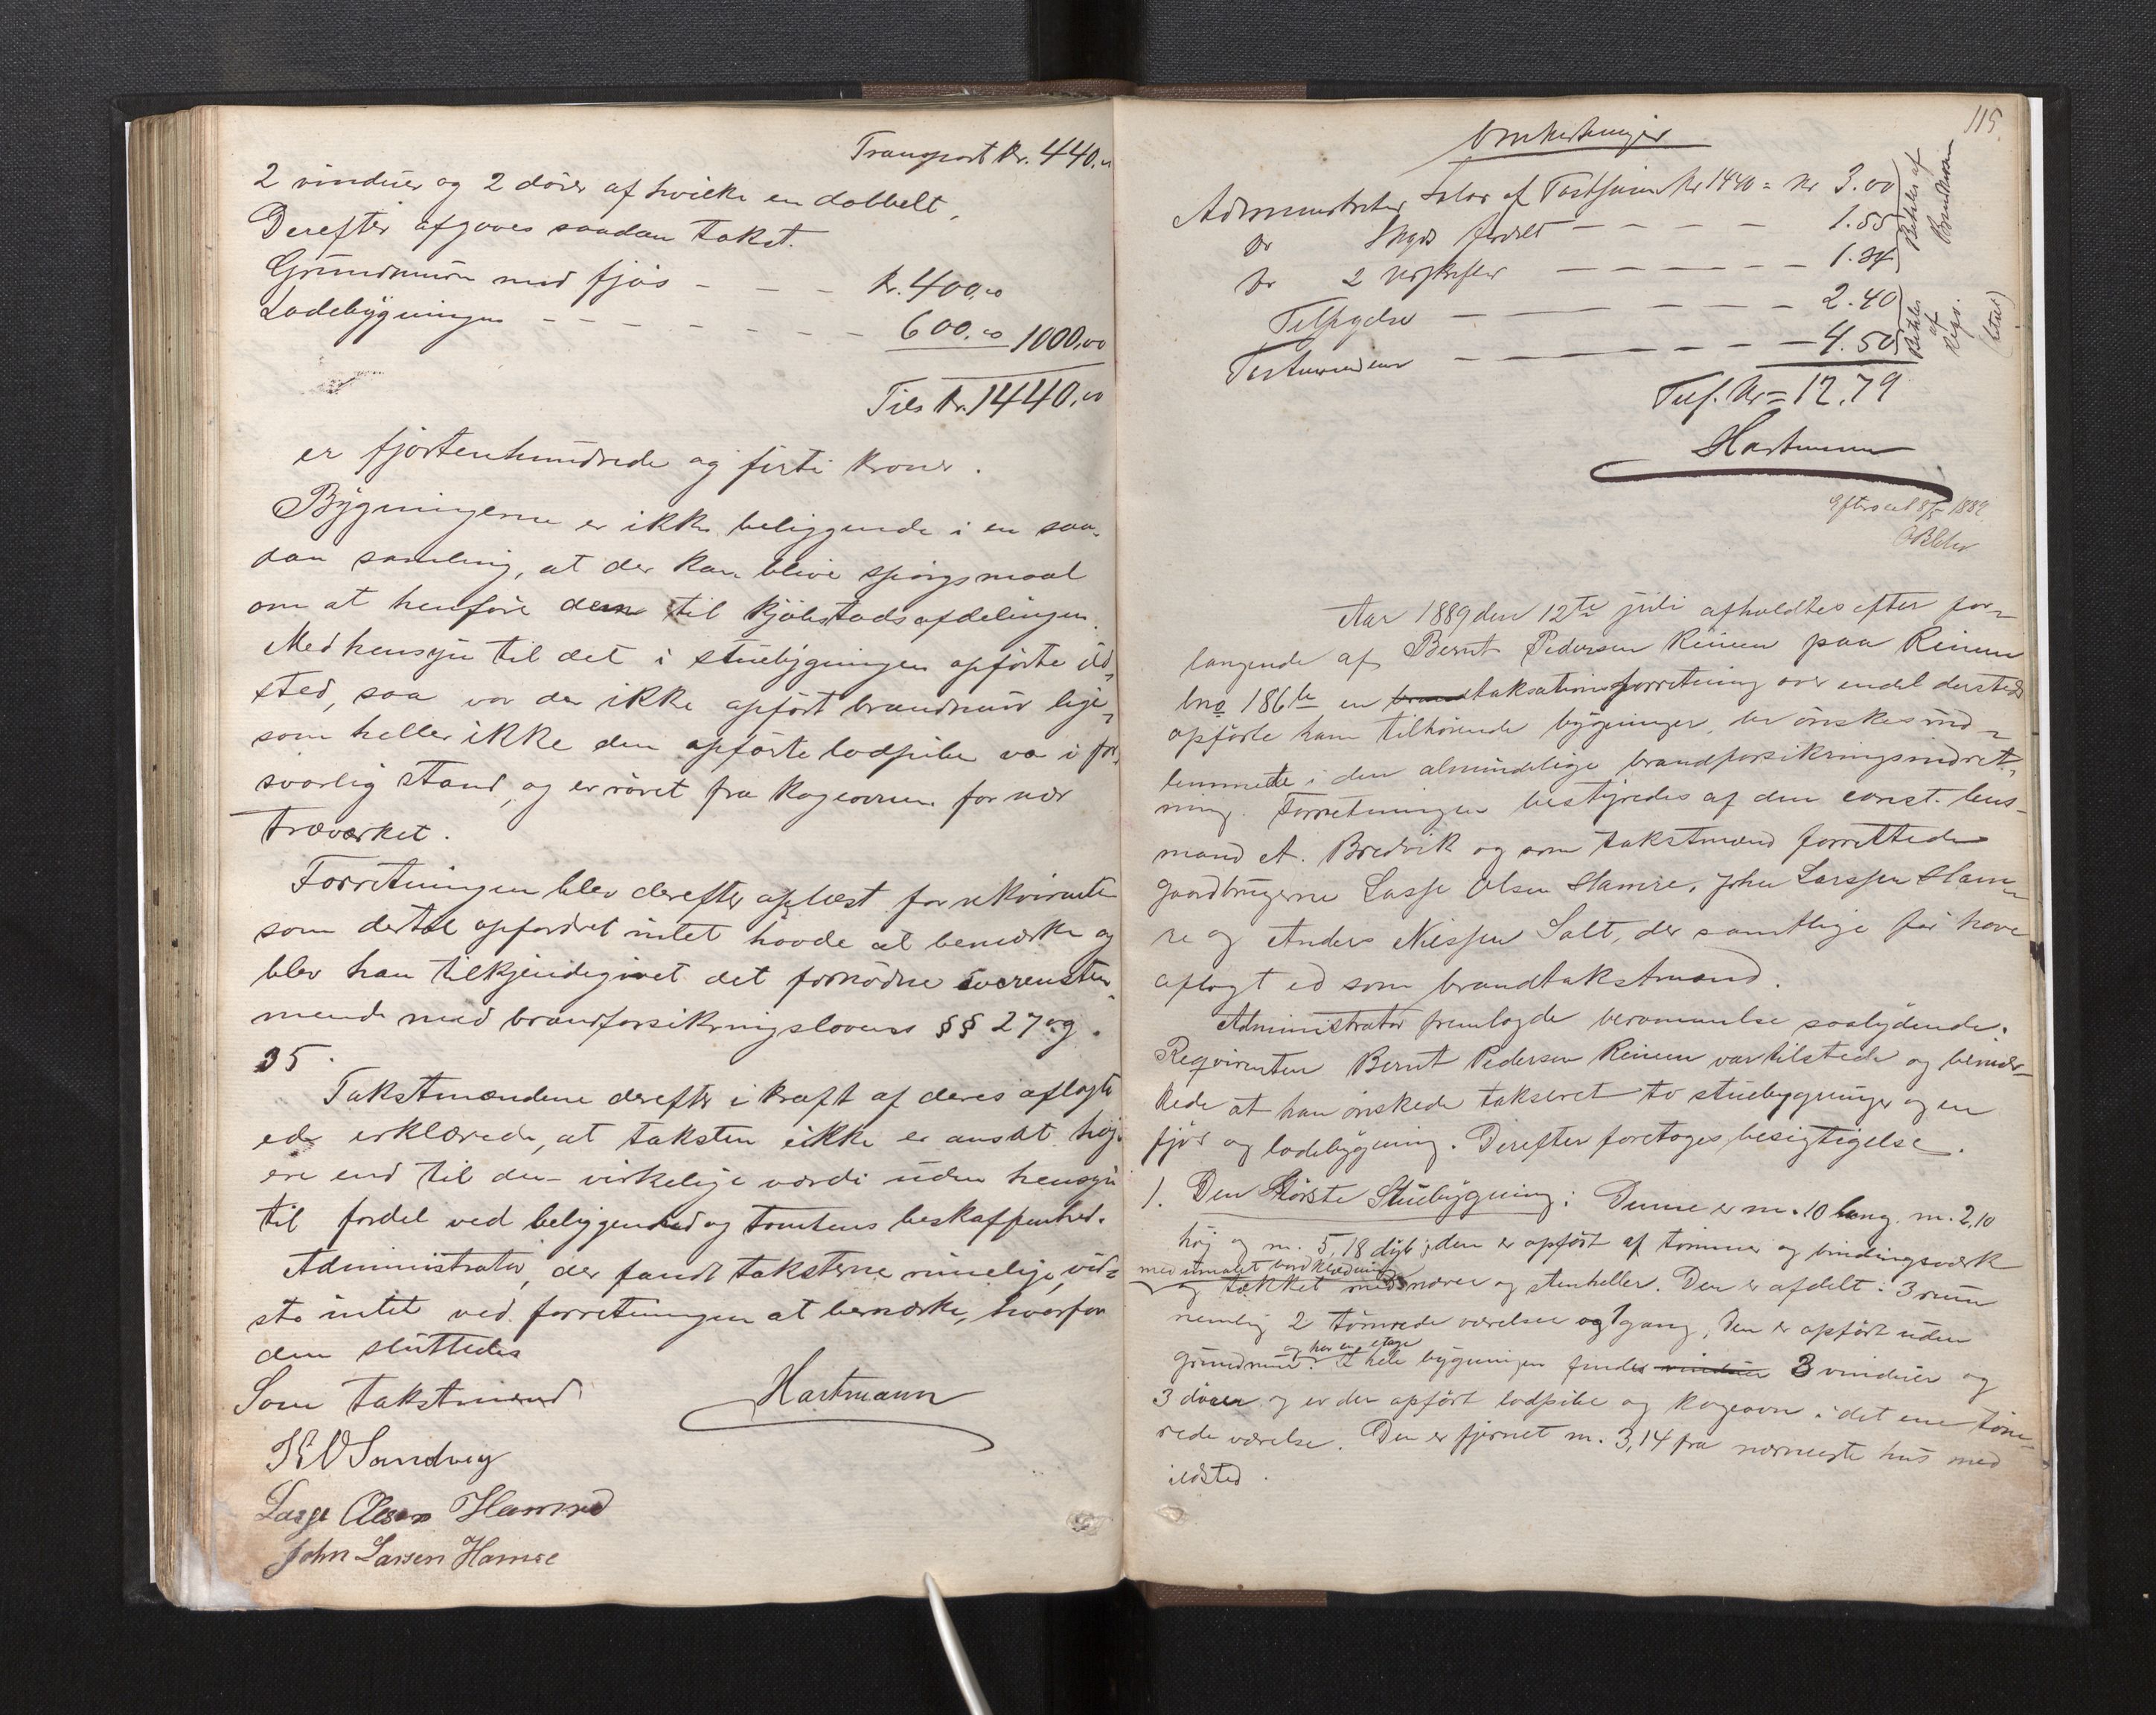 Transport kr. 440,00
2 vinduer og 2 döre af hvilke en dobbelt,
Derefter afgaves saadan takst.
Grundmuren med fjös - - - kr. 400,00
Ladebygningen - - - - - - - 600,00 1000,00
Tils kr. 1440,00
er fjortenhundrede og förti kroner.
Bygningerne er ikke beliggende i en saa-
dan samling, at der kan blive spörgsmaal
om at henföre dem til kjöbstadsafdelingen.
Med hensyn til det i stuebygningen opförte ild-
sted, saa var der ikke opfört brandmur lige-
som heller ikke den opförte lodpibe var i for-
svarlig stand, og er röret fra kogeovnen for nær
træværket.
Forretningen blev derefter oplæst for rekvirenten
som dertil opfordret intet havde at bemærke og
blev han tilkjendegivet det fornödne overenstem-
mende med brandforsikringslovens §§ 27 og
35.
Takstmændene derefter i kraft af deres aflagte
ed erklærede, at taksten ikke er ansat höj-
ere end til den virkelige værdi uden hensyn
til fordel ved beliggenhed og tomtens beskaffenhed.
Administrator, der fandt taksterne rimelige, vid-
ste intet ved forretningen at bemærke, hvorfor
den sluttedes
Som takstmænd Hartmann
K O Sandvig
Lasse Olsen Hamre
John Larsen Hamre
115.
Omkostninger
Administrator Salær af Takstsum Kr 1440 = Kr 3.00
Do Skyds fordelt - - - - - 1.55
Do 2 Udskrifter - - - - - - 1.34
Tilsigelse - - - - - - - 2.40
Takstmændene - - - - - - - 4.50
Betales af Brandkassen
Betales af Reqv.
(betalt)
Tils. Kr = 12.79
Hartmann
Efterseet 8/5 1889
Aar 1889 den 12te juli afholdtes efter for-
langende af Bernt Pedersen Reinen paa Reinen
bno 186 b en brandtaksationsforretning over endel dersteds
opförte ham tilhörende bygninger, der önskes ind-
lemmede i den almindelige brandforsikringsindret-
ning. Forretningen bestyredes af den const. lens-
mand A. Bredvik og som takstmænd forrettede
gaardbrugerne Lasse Olsen Hamre, John Larssen Ham-
re og Anders Nilssen Salt, der samtlige för have
aflagt ed som brandtakstmænd.
Administrator fremlagde berammelse saalydende.
Reqvirenten Bernt Pedersen Reinen var tilstede og bemær-
kede at han önskede takseret to stuebygninger og en
fjös og ladebygning. Derefter foretoges besigtigelse.
1. Den störste Stuebygning: Denne er m. 10 lang, m. 2,10
höj og m. 5,18 dyb; den er opfört af tömmer og bindingsværk
med umalet bordklædning
og tækket med næver og stenheller. Den er afdelt i 3 rum
nemlig 2 tömrede værelser og 1 gang, den er opfört uden
og har en etage
grundmur. I hele bygningen findes vinduer 3 vinduer og
3 döre og er der opfört lodpibe og kogeovn i det ene töm-
rede værelse. Den er fjernet m. 3,14 fra nærmeste hus med
ildsted.